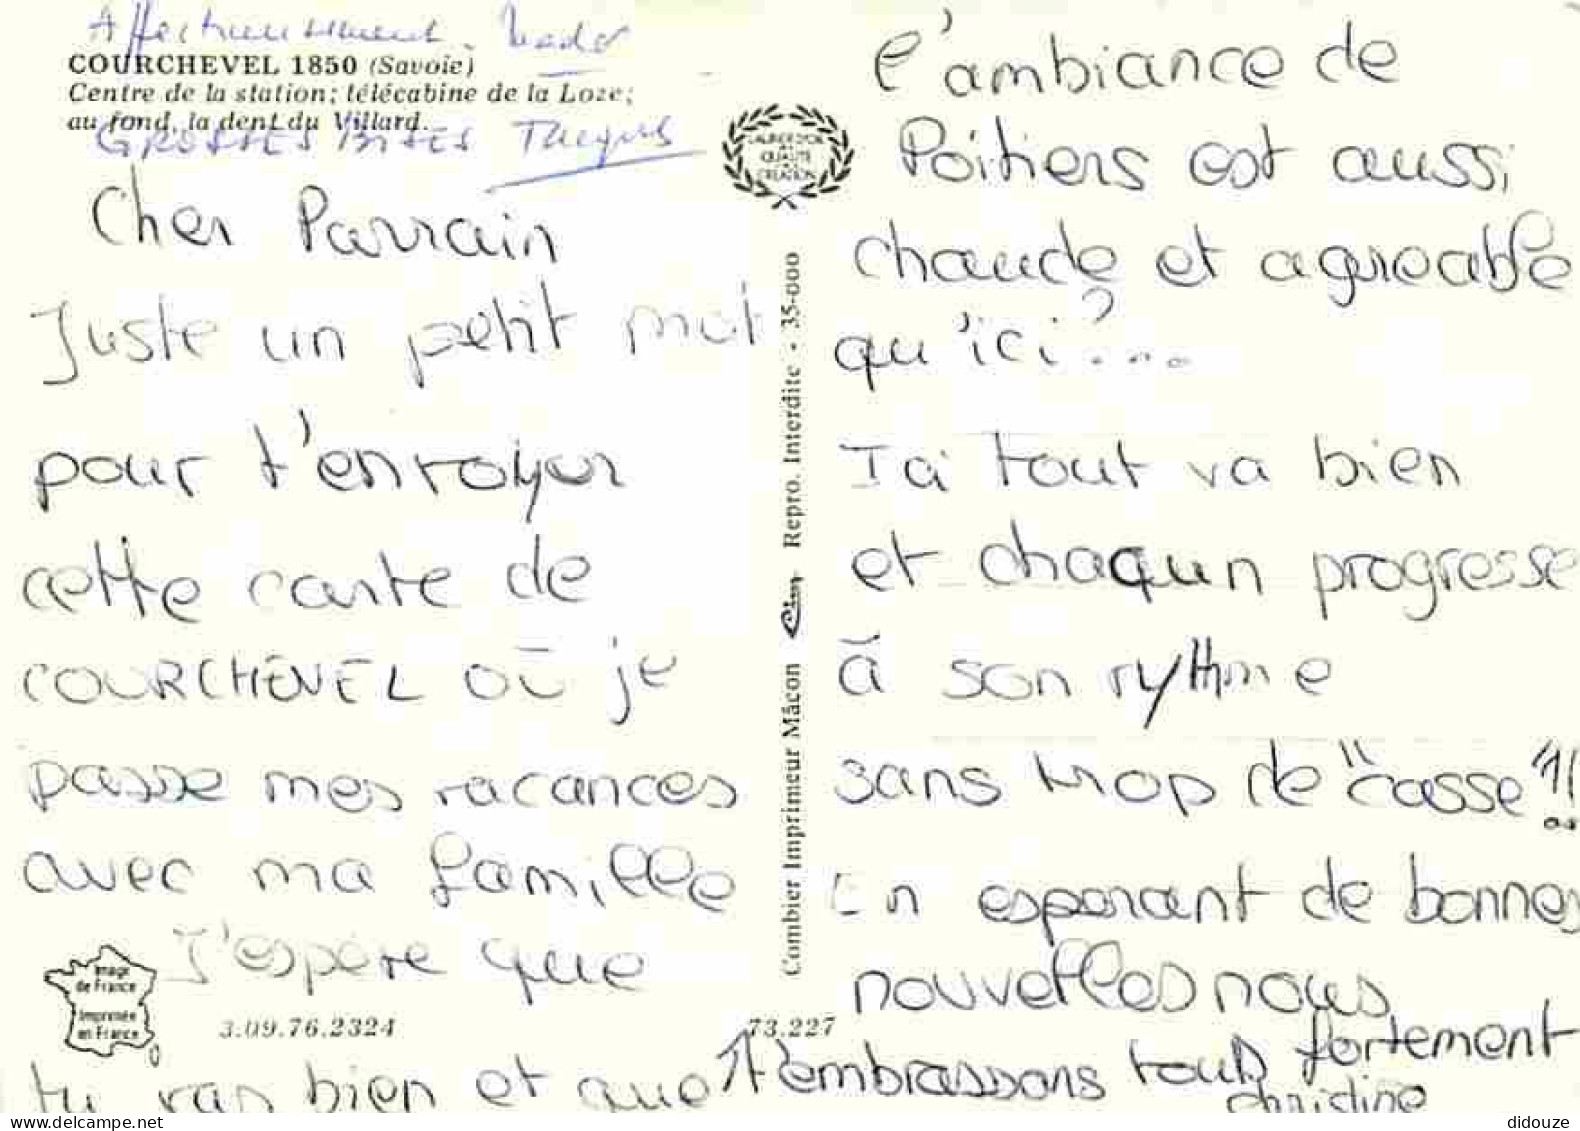 Affectueusement
COURCHEVEL 1850 (Savoie)
Centre de la station; télécabine de la Loze;
au fond, la dent du Villard.
GROSSES BISES Jacques
LAURIER D'OR
QUALITÉ
CRÉATION
Cher Parrain
Juste un petit mot
pour t'envoyer
cette carte de
COURCHEVEL où je
passe mes vacances
avec ma famille
J'espère que
Image
de France
Imprimée
en France
3.09.76.2324
73.227
tu vas bien et que
Combier Imprimeur Mâcon Cim Repro. Interdite • 35-000
l'ambiance de
Poitiers est aussi
chaude et agreable
qu'ici?...
Ici tout va bien
et chaqun progresse
à son rythme
sans trop de "casse"!!
En esperant de bonnes
nouvelles nous
t'embrassons tous fortement
christine
didouze